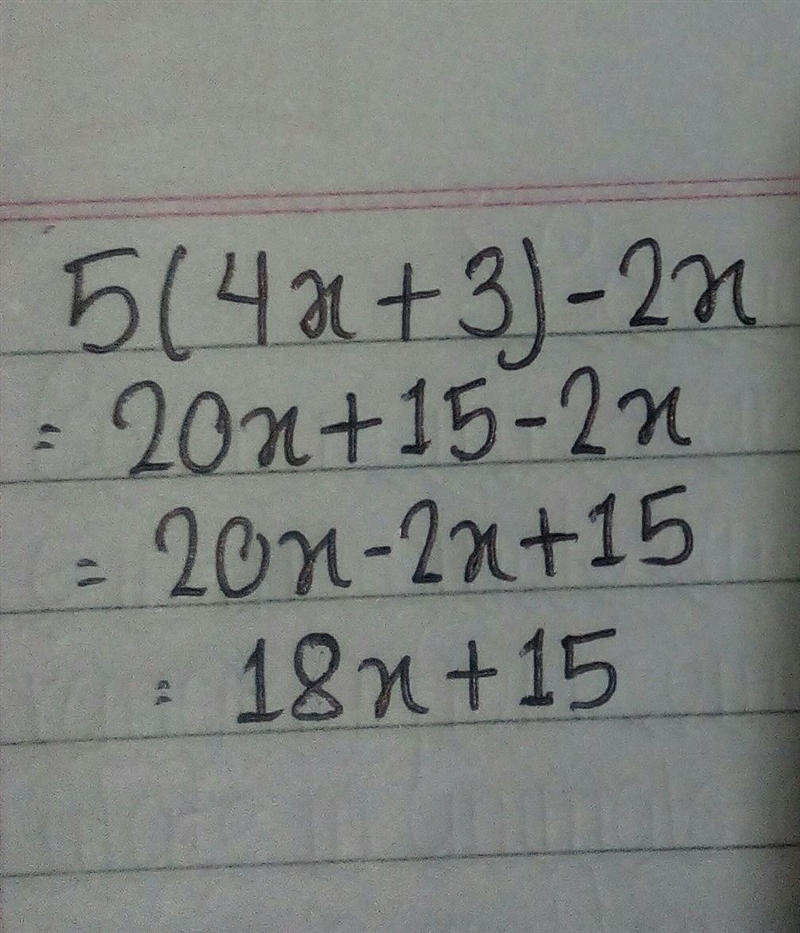 5(4x+3)-2x
= 20x+15-2x
= 20x-2x+15
= 18x+15